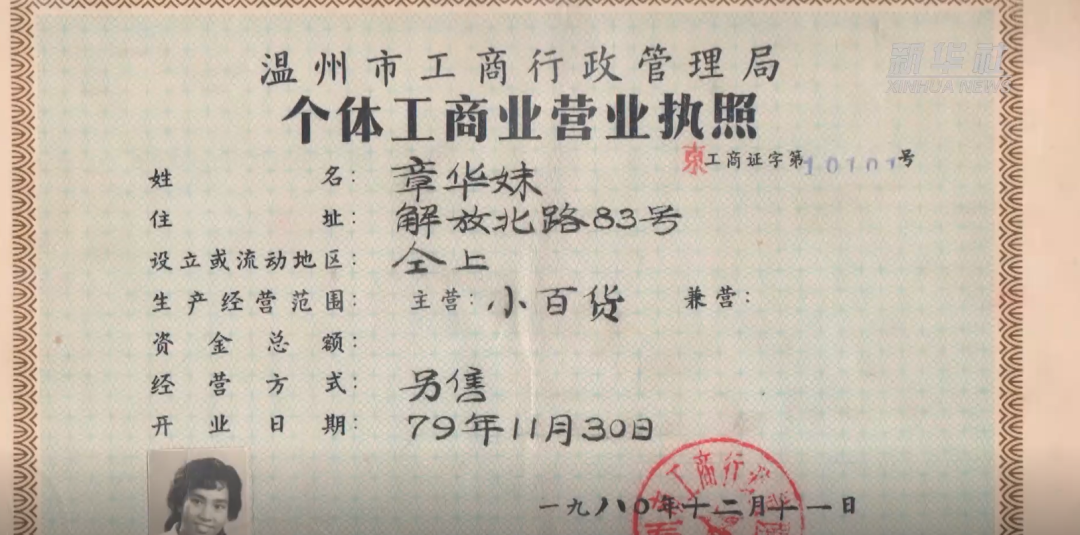 新华社
XINHUA NEWS
温州市工商行政管理局
个体工商业营业执照
东工商证字第10101号
姓名：章华妹
住址：解放北路83号
设立或流动地区：仝上
生产经营范围：主营：小百货 兼营：
资金总额：
经营方式：另售
开业日期：79年11月30日
工商行政
一九八〇年十二月十一日